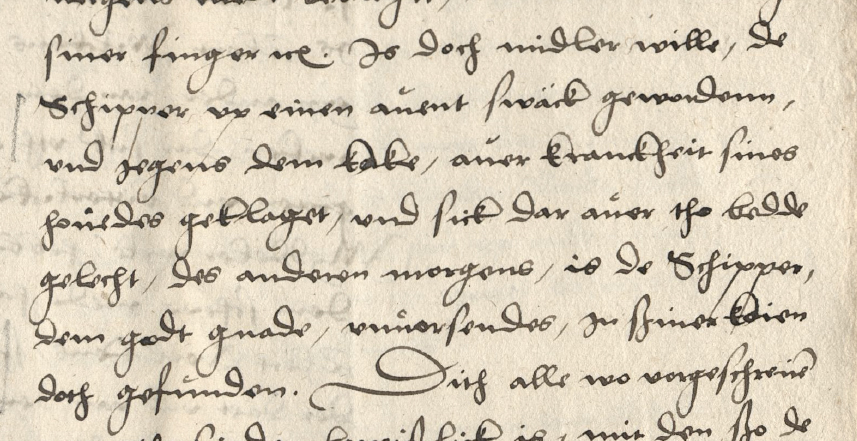 siner finger ıcx. Is doch midler wille, de
Schipper vp einen auent swack gewordenn,
vnd jegens dem koke, auer kranckheit sines
houedes geklaget, vnd sick dar auer tho bedde
gelecht, des anderen morgens, is de Schipper,
dem godt gnade, vnuorsendes, in siner koien
doth gefunden. Dith alle wo vorgeschreuē
is, mit den so de